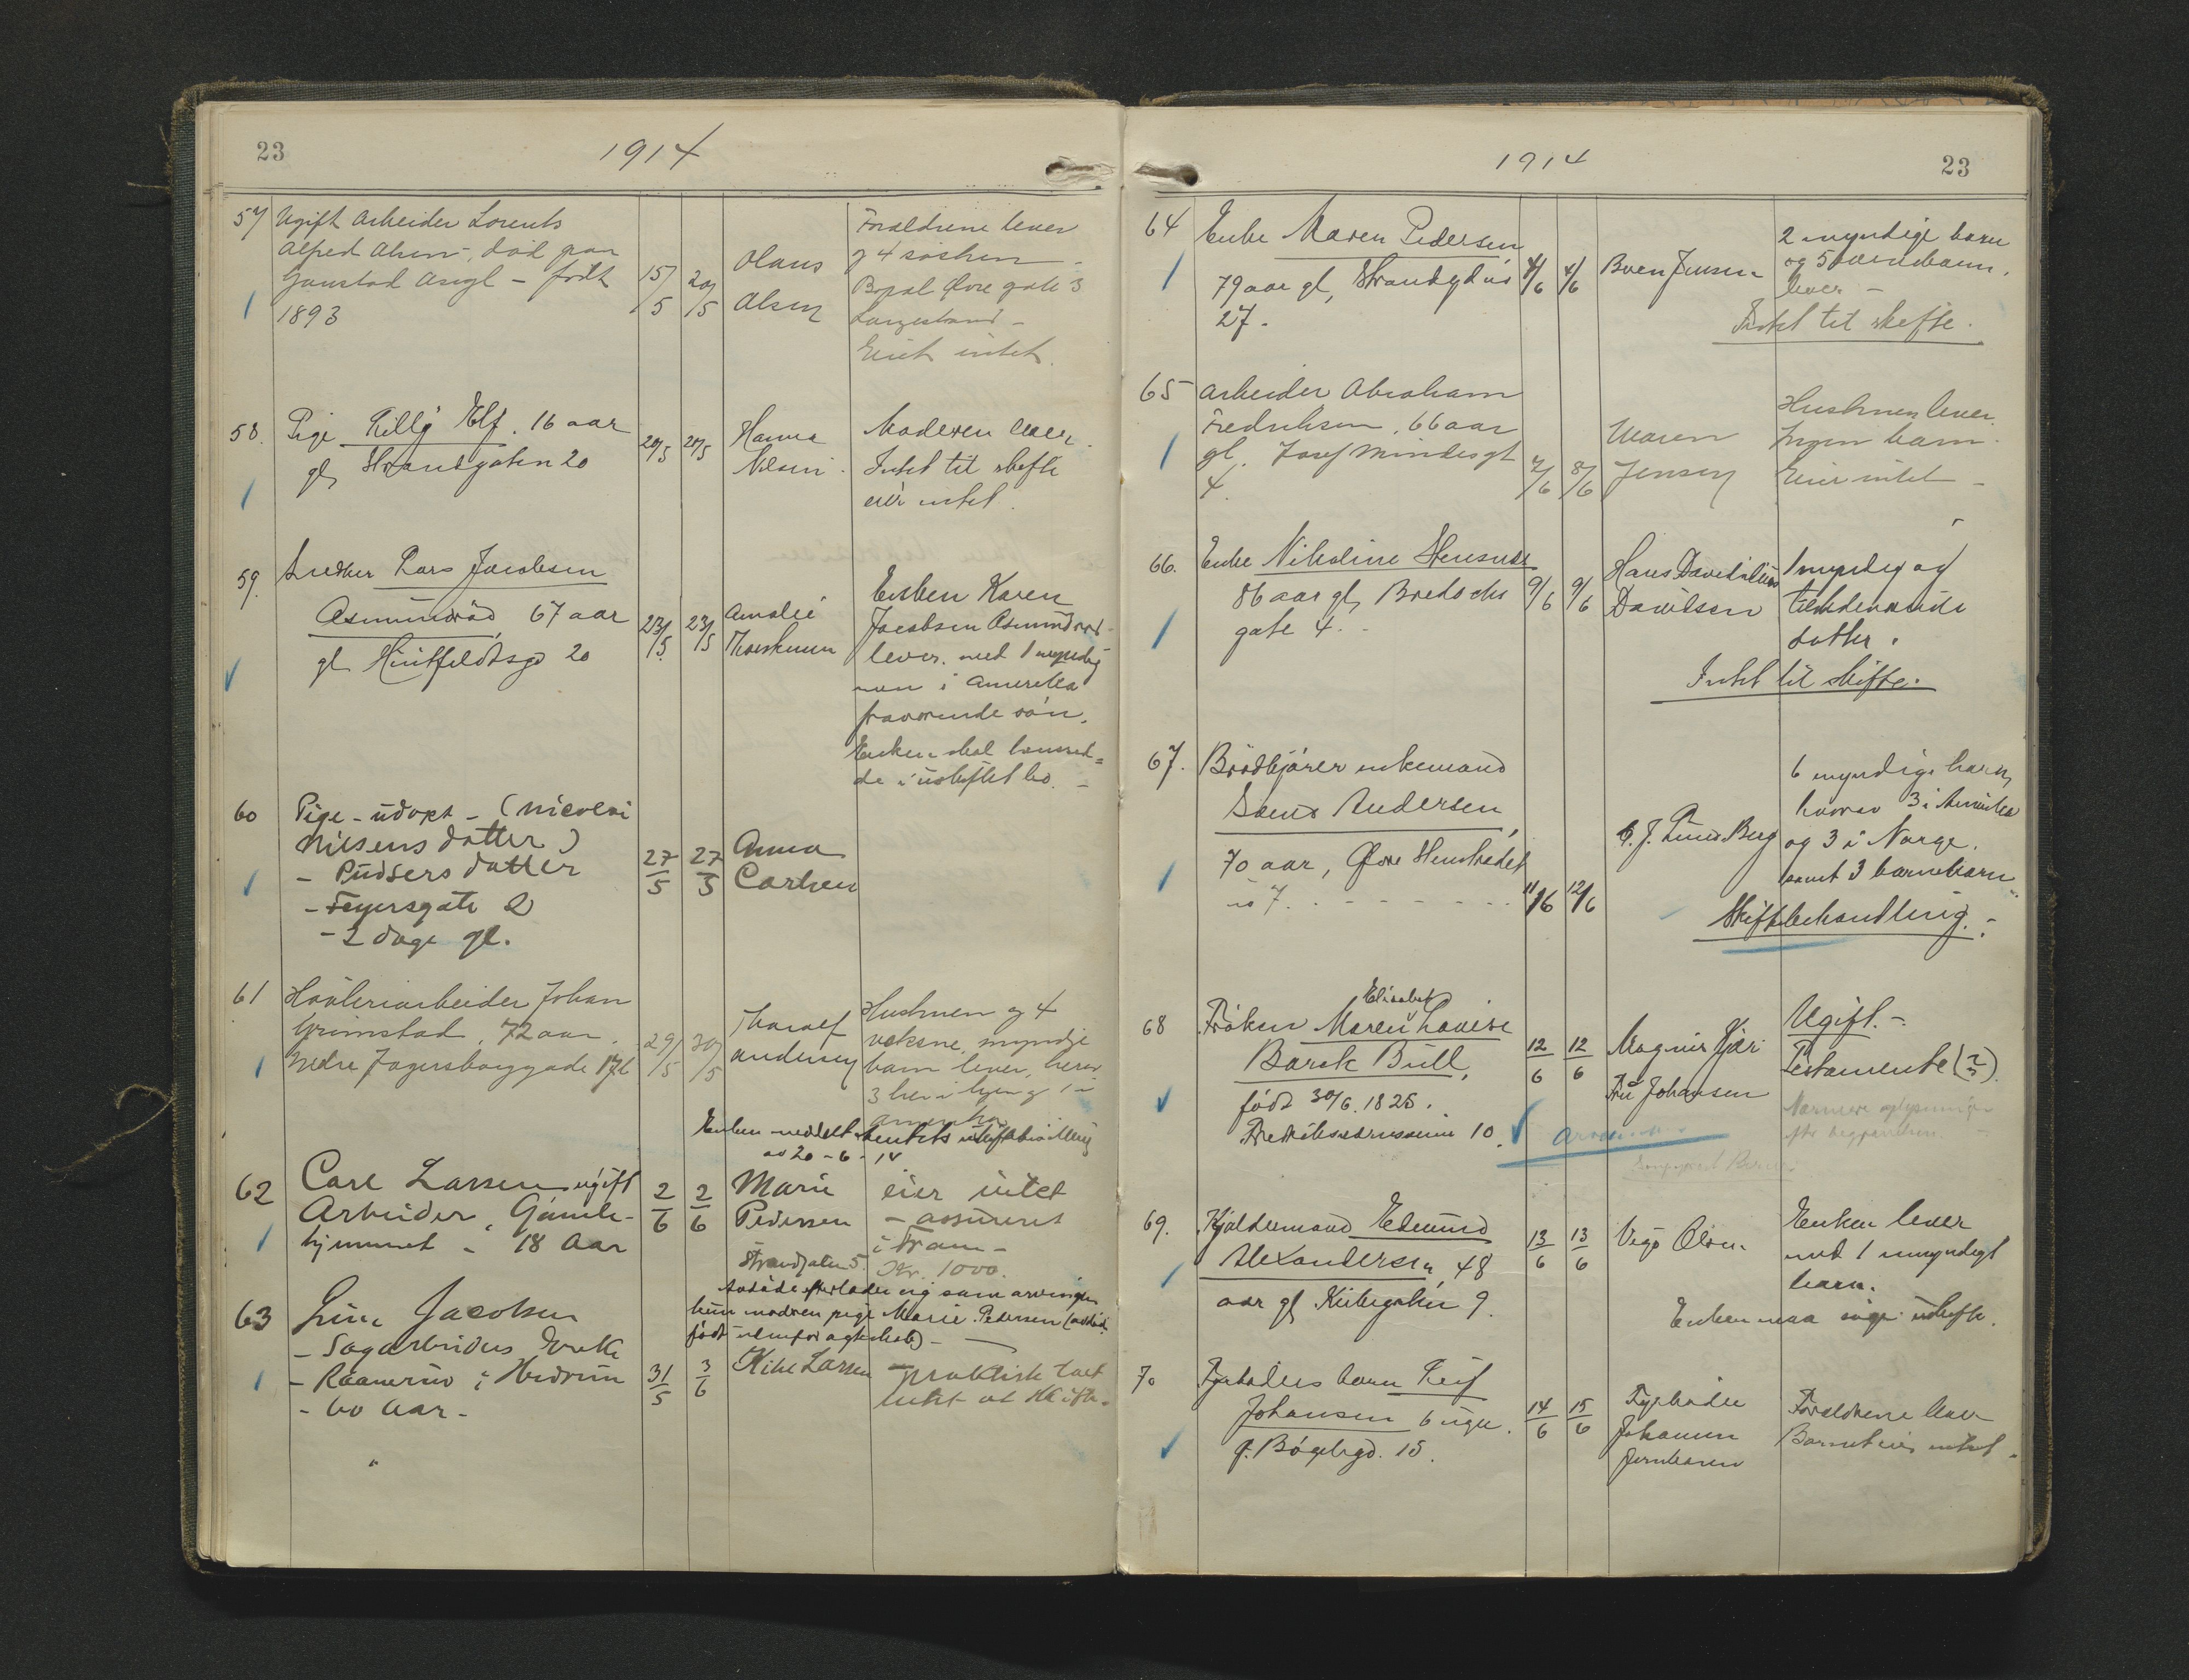 23
1914
57 Ugift Arbeider Lorents
Alfred Olsen, död paa
Gaustad Asyl - født
1893
15/5 20/5
Olaus
Olsen
Forældrene lever
og 4 søsken -
Bopæl Øvre gate 3
Langestrand -
Eiet intet.
58. Pige Lilly Elf. 16 aar
gl, Strandgaten 20
20/5 20/5
Hanna
Nilsen.
Moderen lever.
Intet til skifte
eier intet.
59. Snedker Lars Jacobsen
Asmundrød 67 aar
gl Huitfeldtsgd 20
23/5. 23/5
Amalie
Enken Karen
Jacobsen Asmundrød
lever. med 1 myndig
i Amerika
fraværende søn.
Enken skal hensid=
de i uskiftet bo. -
60 Pige - udøpt - (Nicolai
Nilsens datter)
- Pudsers datter
- Feyersgate 2
- 2 dage gl.
27/5 27/5
Anna
Carlsen
61 Høvleriarbeider Johan
Grimstad, 72 aar.
Nedre Jegersborggade 17b
29/5 30/5
Thoralf
Andersen
Hustruen og 4
voksne, myndige
barn lever, herav
3 her i byen og 1 i
Amerika
Enken meddelt uskiftebevilling
av 20-6-14
62 Carl Larsen ugift
Arbeider, Gamle-
hjemmet - 18 Aar
2/6 2/6
Marie
Pedersen
Strandgaten 5.
eier intet
- assureret
i Fram -
Kr. 1000.
Avdøde efterlader sig som arvinger
kun moderen pige Marie Pedersen (avdøde
født utenfor ægteskab) -
63 Line Jacobsen
- Sagarbeiders Enke
- Raamund i Hedrum
- 60 Aar -
31/5 3/6
Larsen
- praktisk talt
intet at skifte.
1914
23
64 Enke Maren Pedersen
79 aar gl, Strandgd no
27.
4/6 4/6
Jensen
2 myndige barn
og 5 barnebarn.
lever -
Intet til skifte.
65 Arbeider Abraham
Fredriksen, 66 aar
gl. Josef Mindes gt
4.
7/6 8/6
Maren
Jensen
Hustruen lever.
Ingen barn.
Eier intet -
66. Enke Nikoline
86 aar gl,
gate 4. -
9/6 9/6
Hans
Davidsen
1 myndig og
tilstedeværende
datter.
Intet til skifte.
67. Brødkjører enkemand
Andersen,
70 aar, Øvre
no 7. - - - - - - -
11/6 12/6
C. J. Lund Berg
6 myndige barn,
hvorav 3 i Amerika
og 3 i Norge.
samt 3 barnebarn
Skiftebehandling. -
68 Frøken Maren Elisabet Lovise
Barck Bull,
født 30/6. 1825.
10.
12/6 12/6
Magnus Kjær
Fru Johansen
Ugift. -
Testamente (?).
Nærmere oplysninger
efter begravelsen. -
69. Kjeldermand Edmund
Alexandersen, 48
aar gl Kirkegaten 9.
13/6 13/6
Vigo Olsen
Enken lever
med 1 umyndigt
barn.
Enken maa uskifte.
70 Fyrbøders barn Leif
Johansen 6 uger.
Bøgebgd. 15.
14/6 15/6
Fyrbøder
Johansen
Forældrene lever
Barnet eier intet.